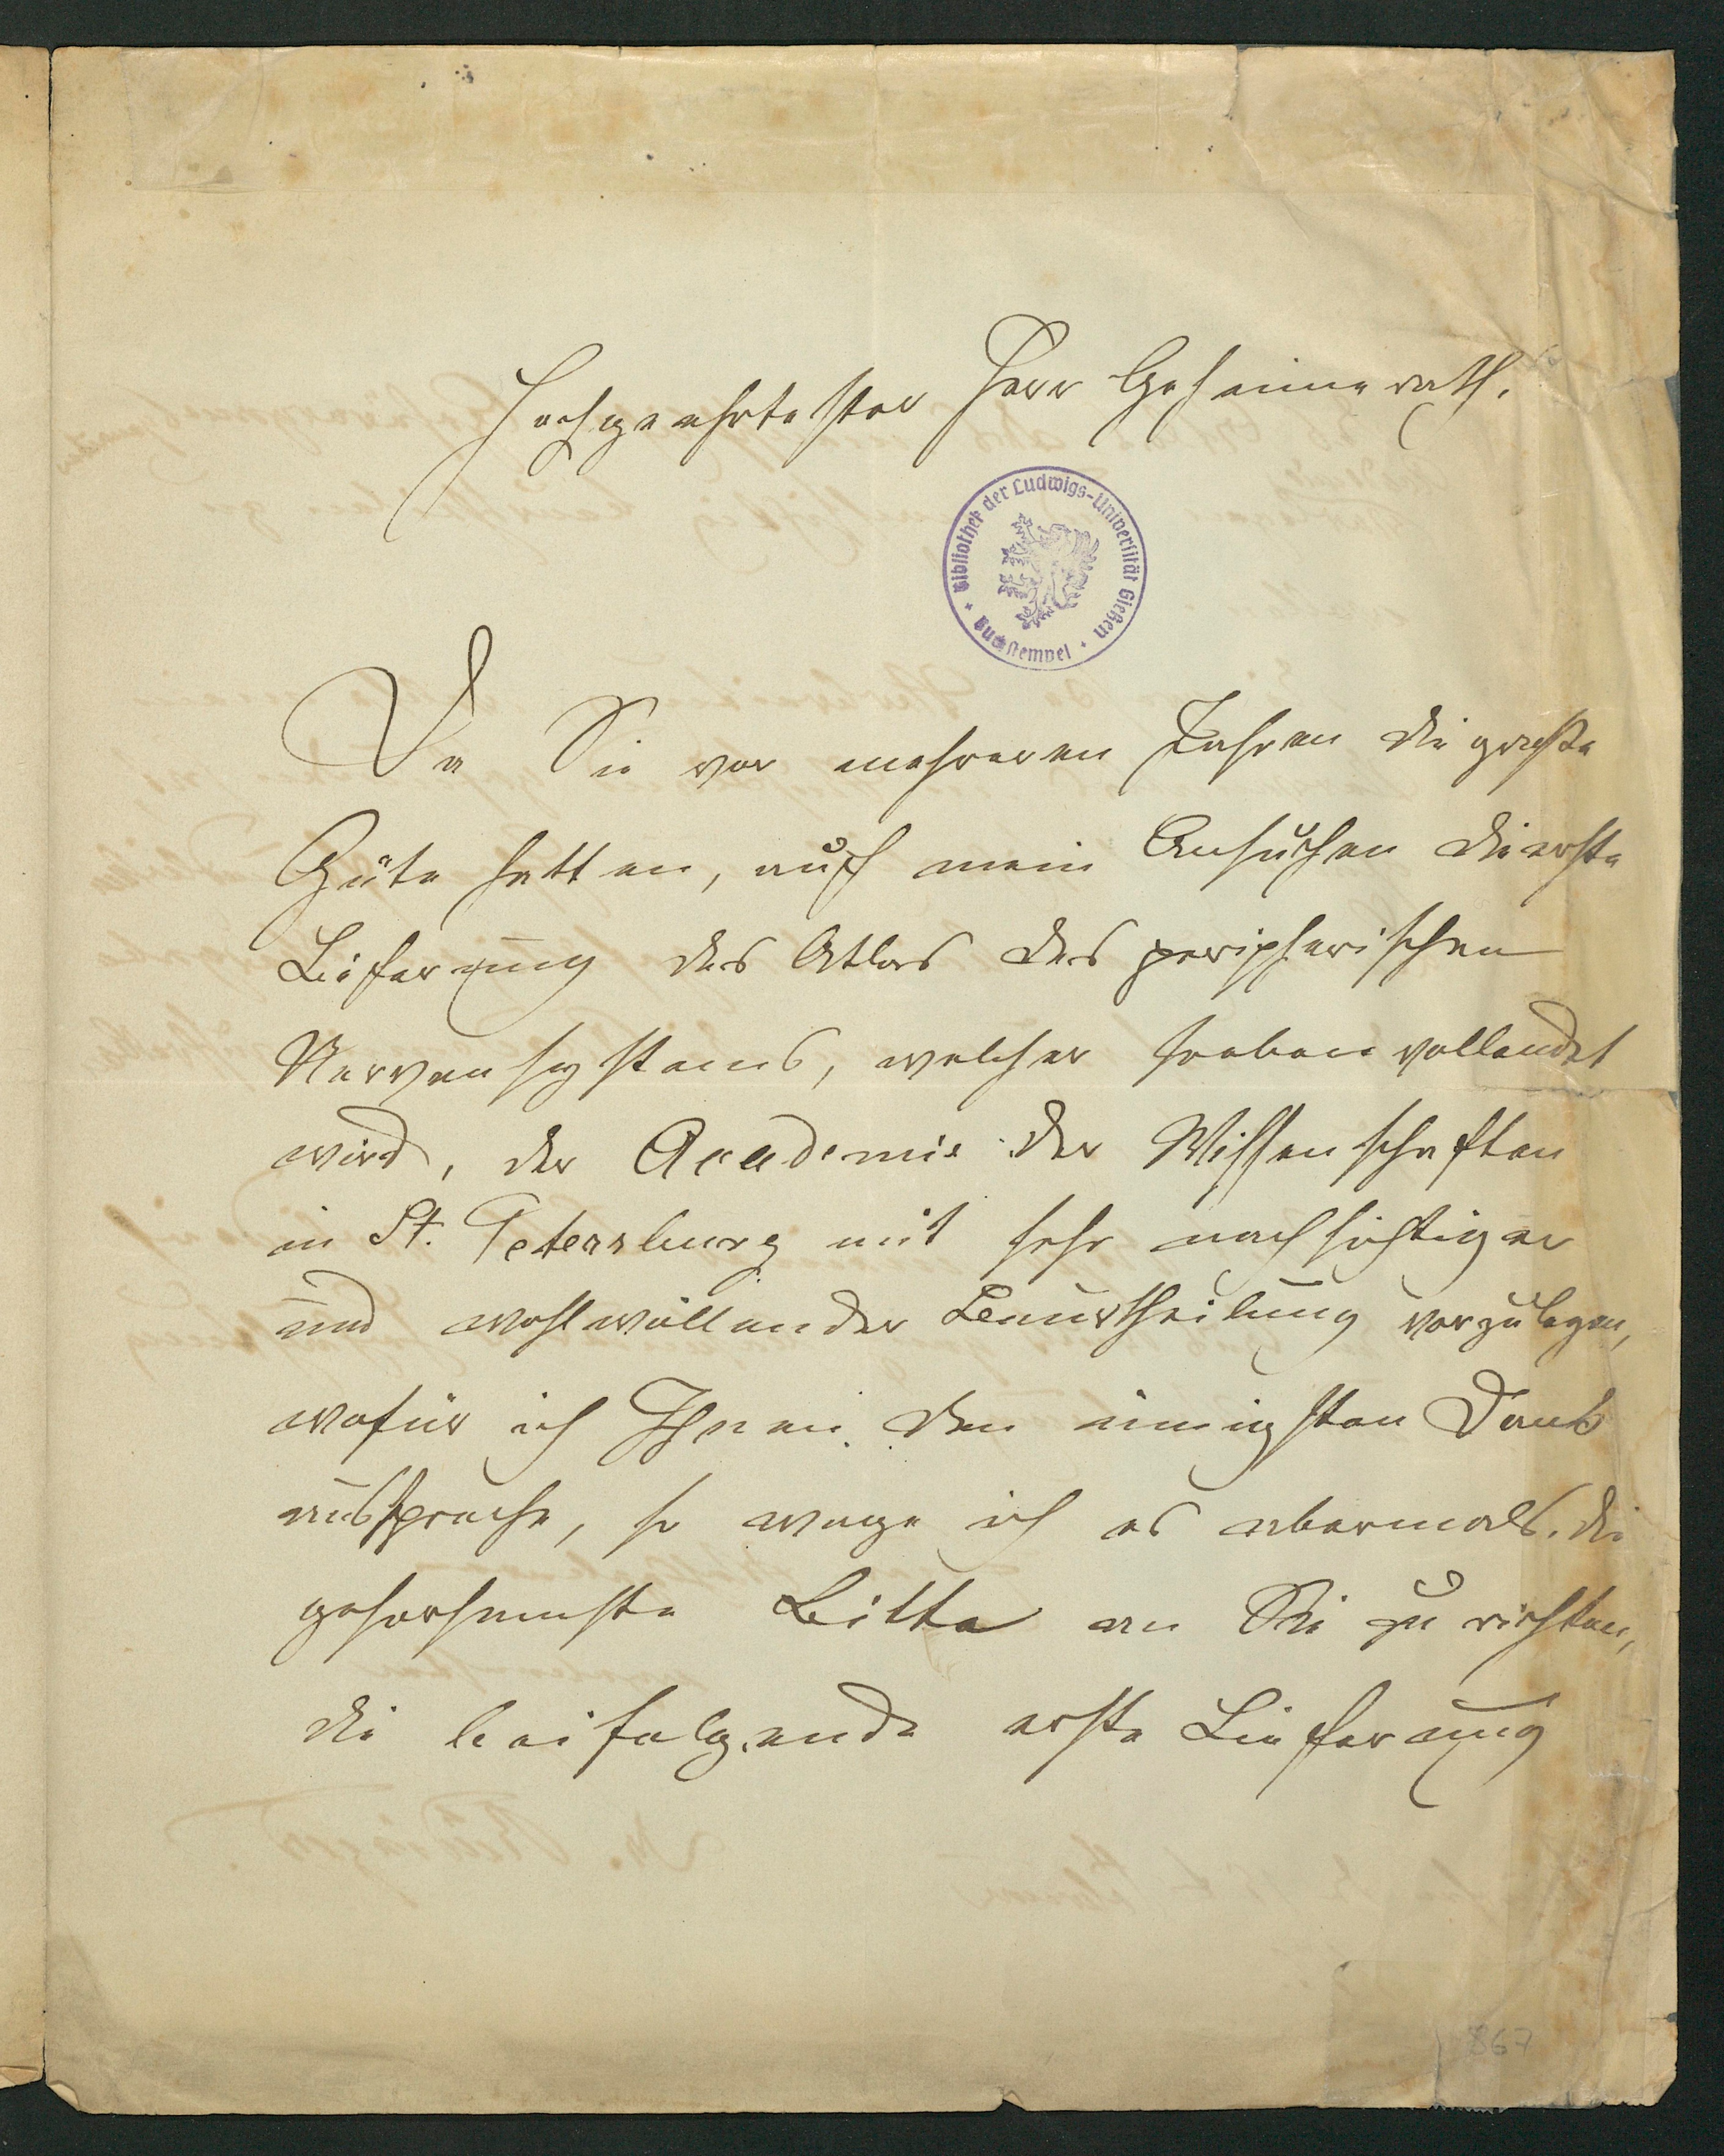 Hochgeehrtester Herr Geheimerath.
Bibliothek der Ludwigs-Universität Gießen
Buchstempel
Da Sie vor mehreren Jahren die große
Güte hatten, auf mein Ansuchen die erste
Lieferung des Atlas des peripherischen
Nervensystems, welcher soeben vollendet
wird, der Academie der Wissenschaften
in St. Petersburg mit sehr nachsichtiger
und wohlwollender Beurtheilung vorzulegen,
wofür ich Ihnen den innigsten Dank
ausspreche, so wage ich es abermals die
gehorsamste Bitte an Sie zu richten,
die beifolgende erste Lieferung
867